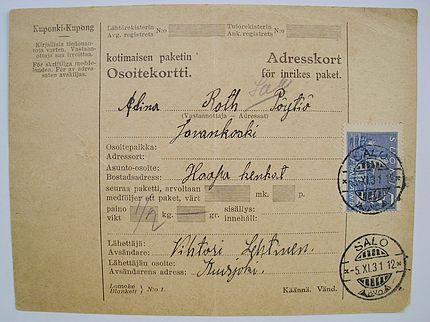 Kuponki-Kupong
Kirjallisia tiedonan-
toja varten. Vastaan-
ottaja saa irroittaa.
För skriftliga medde-
landen. Får av adres-
saten avskiljas.
Lähtörekisterin
Avg. registrets N:o
Tulorekisterin
Ank. registrets N:o
kotimaisen paketin
Osoitekortti.
Adresskort
för inrikes paket.
Roth Pöytiö
(Vastaanottaja — Adressat)
Osoitepaikka:
Adressort:
Asunto-osoite:
Bostadsadress:
seuraa paketti, arvoltaan
medföljer ett paket, värt
mk. p.
paino
vikt
1/2 kg. gr.
sisällys:
innehåll:
Lähettäjä:
Avsändare:
Vihtori Lehtinen
Lähettäjän osoite:
Avsändarens adress:
Lomake
Blankett N:o 1.
Käännä. Vänd.
SUOMI
SALO
SALO
-5.XI.31 12